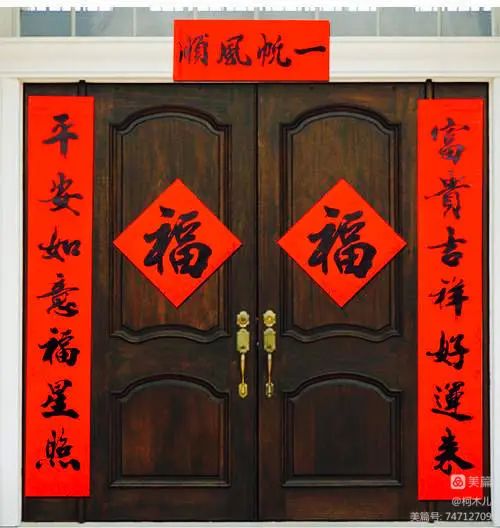 一帆風順
富貴吉祥好運來
平安如意福星照
福
福
美篇
@柯木儿
美篇号: 74712709